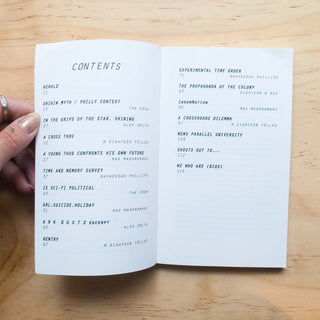 CONTENTS
HERALD
01
ORIGIN MYTH / PHILLY CONTEXT
03 THE CREW
IN THE GRIPS OF THE STAR, SHINING
07 ALEX SMITH
A CROSS THRU
M EIGHTEEN TÉLLEZ
A YOUNG THUG CONFRONTS HIS OWN FUTURE
27 RAS MASHRAMANI
TIME AND MEMORY SURVEY
RASHEEDAH PHILLIPS
IS SCI-FI POLITICAL
THE CREW
URL.SUICIDE.HOLIDAY
RAS MASHRAMANI
ARK DUST2 EXCERPT
ALEX SMITH
GENTRY
57 M EIGHTEEN TÉLLEZ
EXPERIMENTAL TIME ORDER
71 RASHEEDAH PHILLIPS
THE PROPAGANDA OF THE COLONY
EIGHTEEN & RAS
RAS MASHRAMANI
A CROSSROADS DILEMMA
M EIGHTEEN TÉLLEZ
PARALLEL UNIVERSITY
SHOUTS OUT TO...
WE WHO ARE (BIOS)